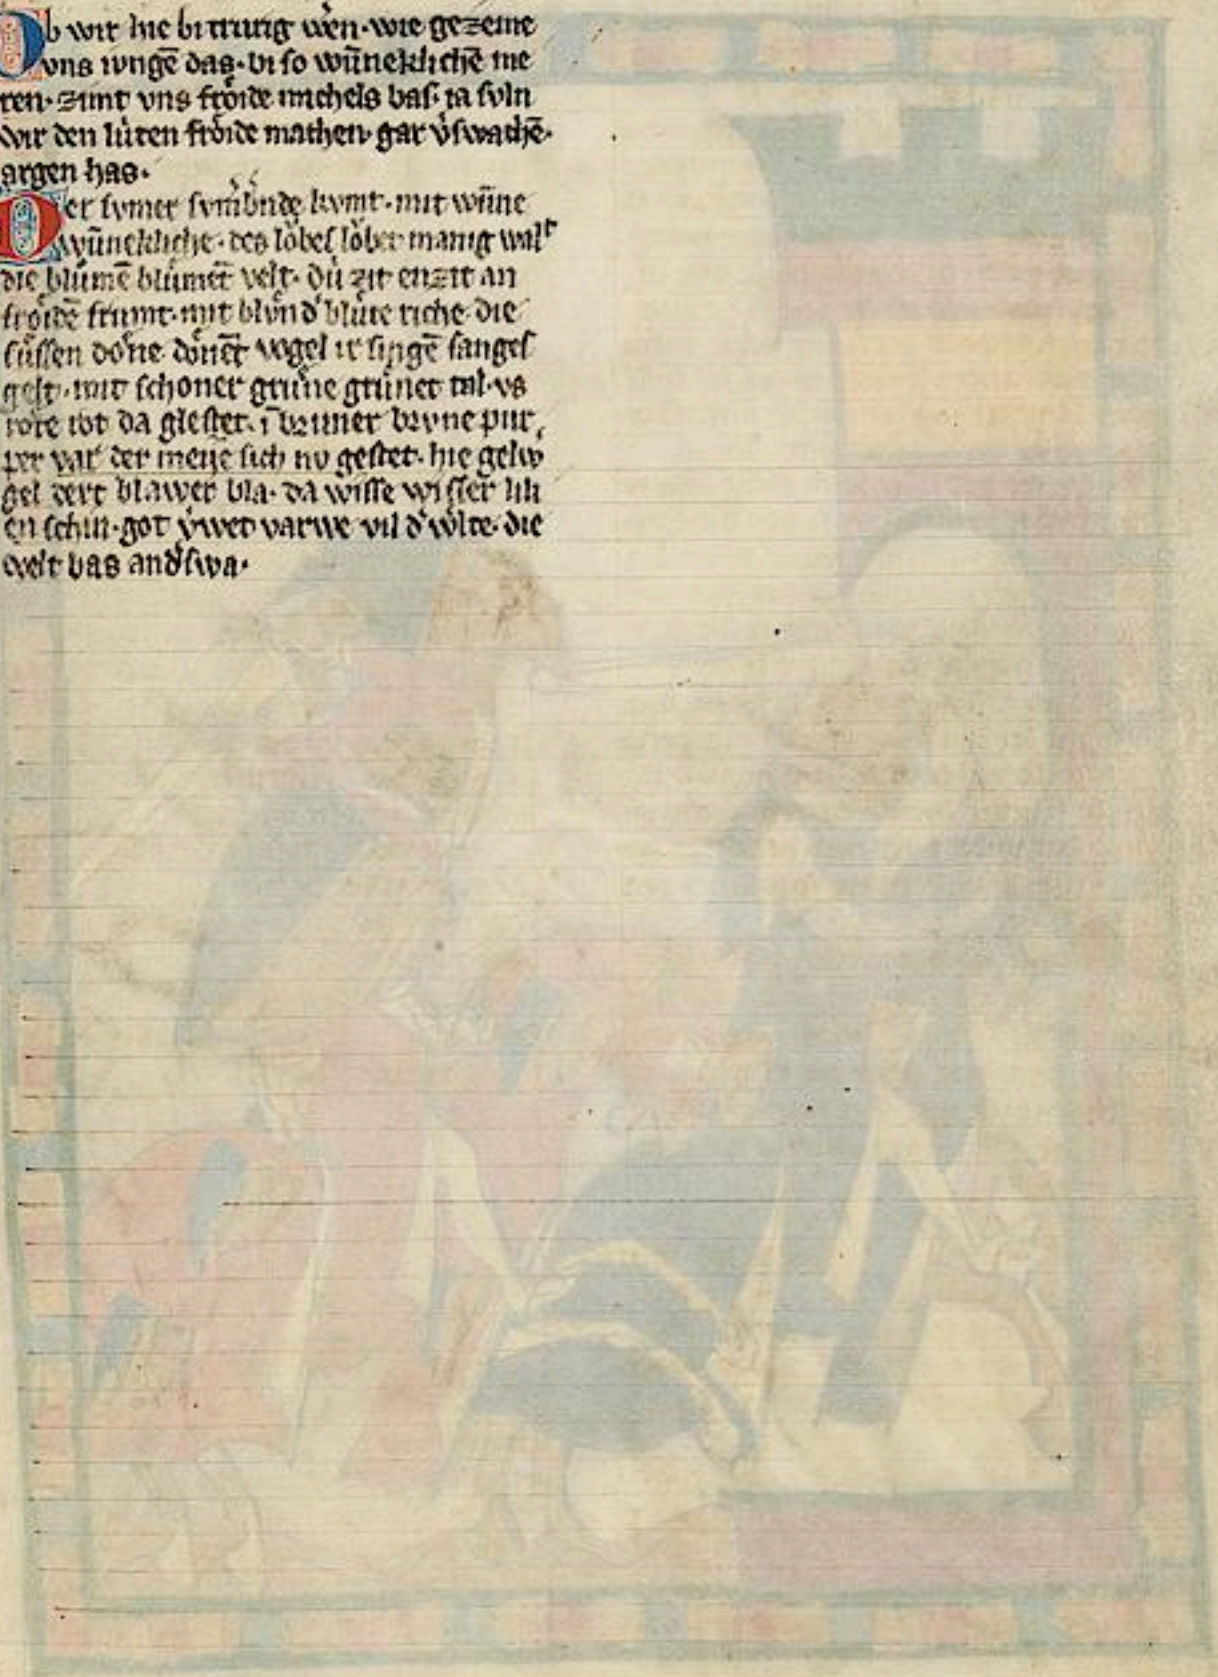 Ob wir hie bi trurig wen · wie gezeme
vns iungē das · bi so wūneklichē me
ren · zimt vns froͤide michels bas · ia suln
wir den luͥten froͤide machen · gar v̓swachē ·
argen has ·
Der sumer kumt · mit wūne
wūnekliche · des loͮbes loͮbet manig walt
die bluͦmē bluͦmēt velt · duͥ zit enzit an
froͤidē frumt · mit bluͤnd̓ bluͤte riche die
suͤssen doͤne doͤnēt vogel ir singē sanges
gelt · mit schoner gruͤne gruͤnet tal · vs
rote rot da glestet · ī bruner brune pur
per var der meije sich nv gestet · hie gelw
gel dert blawer bla · da wisse wisser lili
en schin · got v̓wet varwe vil d̓ wͤlte · die
welt bas and̓swa ·